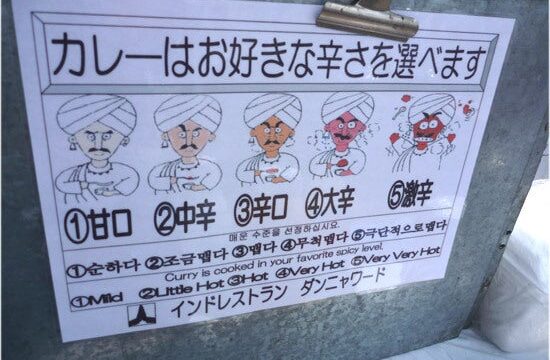 カレーはお好きな辛さを選べます
①甘口 ②中辛 ③辛口 ④大辛 ⑤激辛
매운 수준을 선정하십시요.
①순하다 ②조금맵다 ③맵다 ④무척맵다 ⑤극단적으로맵다
Curry is cooked in your favorite spicy level.
①Mild ②Little Hot ③Hot ④Very Hot ⑤Very Very Hot
インドレストラン ダンニャワード